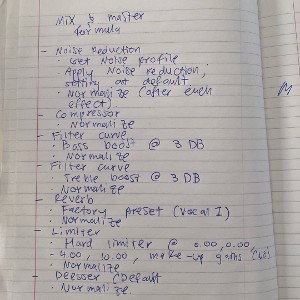 Mix & master
formula
- Noise Reduction
· Get Noise profile
· Apply Noise reduction,
setting at default
· Normalize (after each
effect)
- Compressor
· Normalize
- Filter curve
· Bass boost @ 3 DB
· Normalize
- Filter curve
· Treble boost @ 3 DB
· Normalize
- Reverb
· Factory preset (Vocal I)
· Normalize
- Limiter
· Hard limiter @ 0.00, 0.00
- 4.00, 10.00, make-up gains
· Normalize
- Deesser (Default
· Normalize.